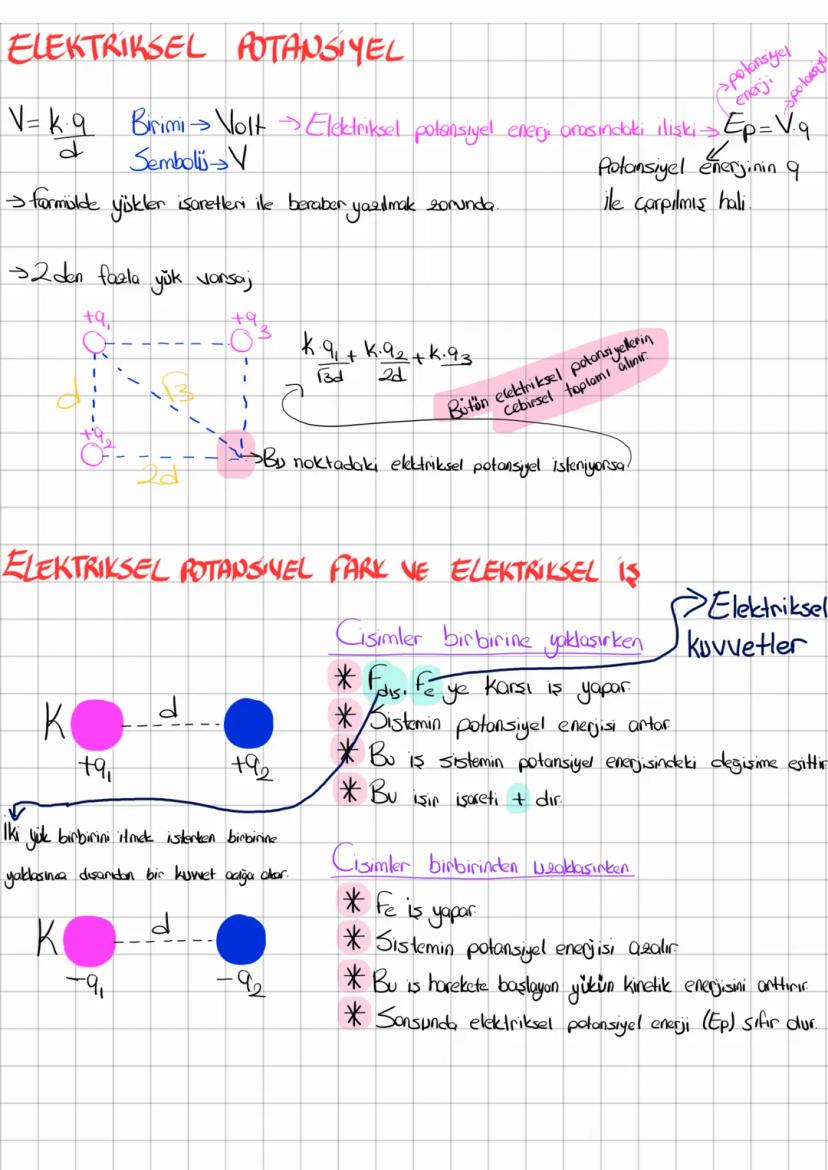 ELEKTRIKSEL POTANSIYEL
V = k.q / d
Birimi → Volt
Sembolü → V
→ Elektriksel potansiyel enerji arasındaki ilişki → Ep = V.q
potansiyel enerji
potansiyel
Potansiyel enerjinin q
ile çarpılmış hali.
→ formülde yükler işaretleri ile beraber yazılmak zorunda.
→ 2 den fazla yük varsa;
+q1
+q3
d
√3
+q2
2d
k.q1/√3d + k.q2/2d + k.q3
Bütün elektriksel potansiyellerin
cebirsel toplamı alınır.
→ Bu noktadaki elektriksel potansiyel isteniyorsa
ELEKTRIKSEL POTANSIYEL FARK VE ELEKTRIKSEL İŞ
→ Elektriksel
kuvvetler
Cisimler birbirine yaklaşırken
* Fdış, Fe ye karşı iş yapar.
* Sistemin potansiyel enerjisi artar
* Bu iş sistemin potansiyel enerjisindeki değişime eşittir
* Bu işin işareti + dır.
K d
+q1 +q2
İki yük birbirini itmek isterken birbirine
yaklaşınca dışarıdan bir kuvvet açığa çıkar.
Cisimler birbirinden uzaklaşırken
* Fe iş yapar.
* Sistemin potansiyel enerjisi azalır
* Bu iş harekete başlayan yükün kinetik enerjisini arttırır.
* Sonsunda elektriksel potansiyel enerji (Ep) sıfır dur.
K d
-q1 -q2